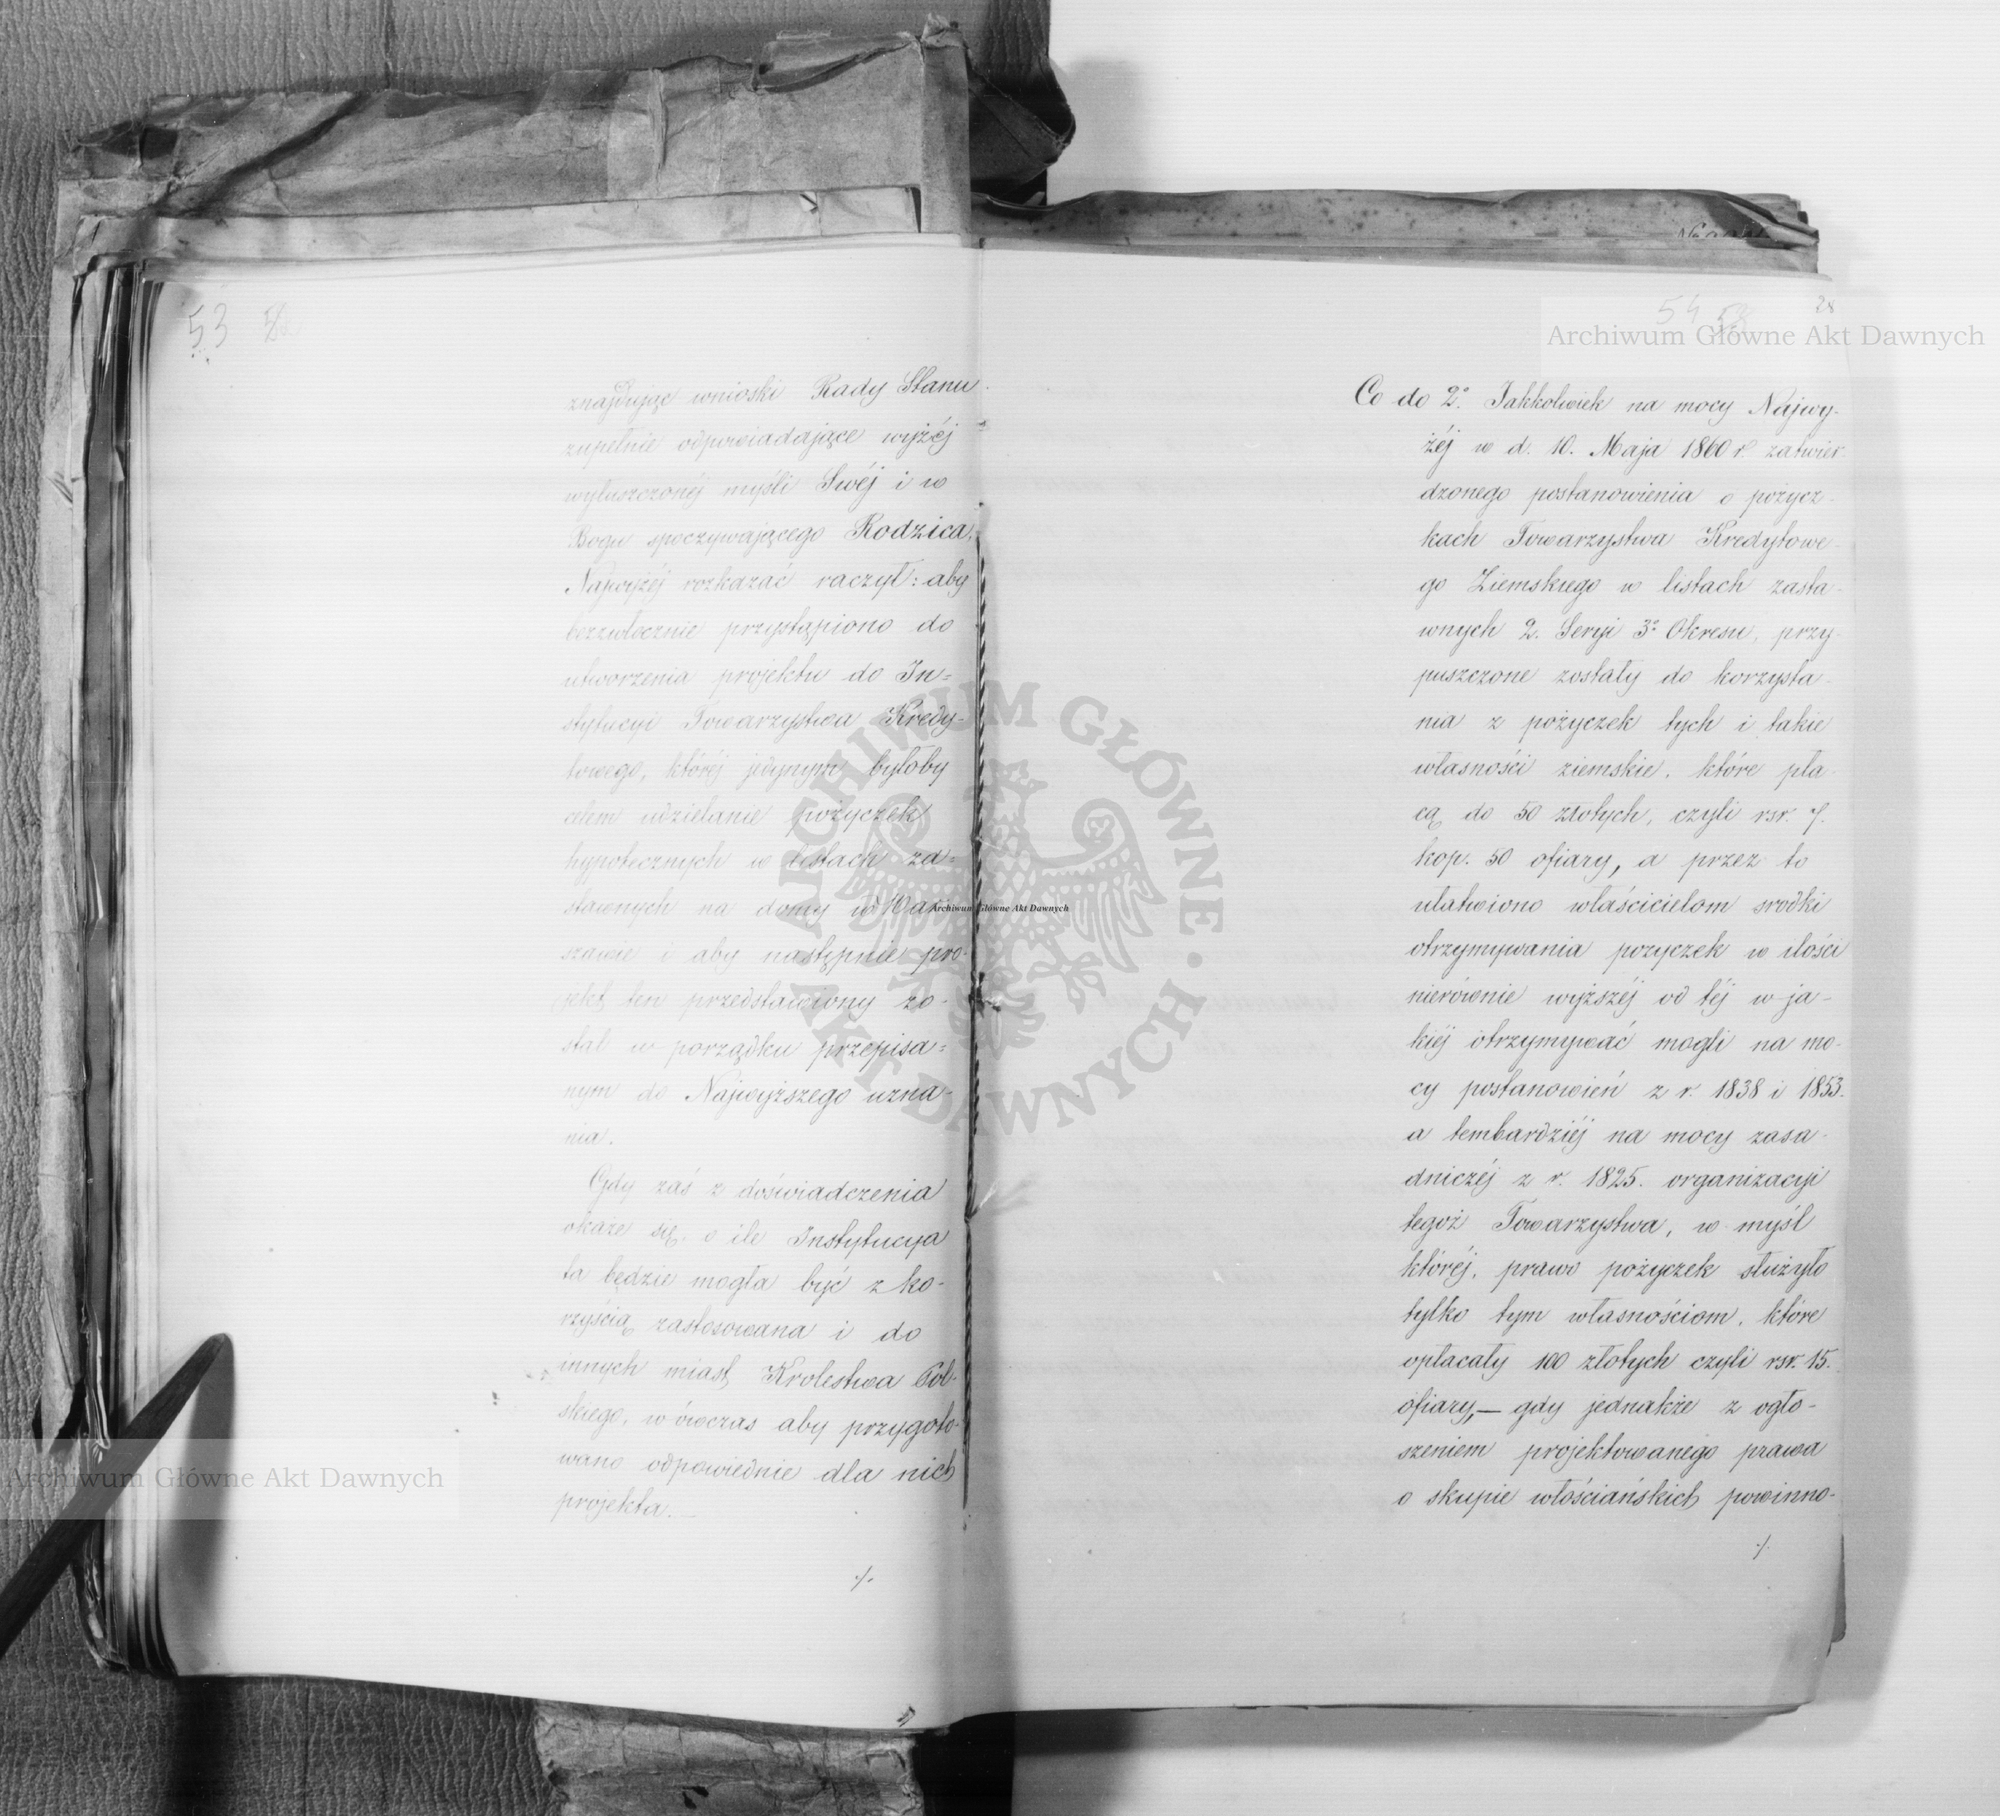 53
znajdując wnioski Rady Stanu
zupełnie odpowiadające wyżéj
wyłuszczonéj myśli Swéj i w
Bogu spoczywającego Rodzica,
Najwyżéj rozkazać raczył: aby
bezzwłocznie przystąpiono do
utworzenia projektu do In=
stytucyi Towarzystwa Kredy-
towego, któréj jedynym byłoby
celem udzielanie pożyczek
hypotecznych w listach za=
stawnych na domy w War=
szawie i aby następnie pro-
jekt ten przedstawiony zo-
stał w porządku przepisa=
nym do Najwyższego uzna-
nia.
Gdy zaś z doświadczenia
okaże się, o ile Instytucya
ta będzie mogła być z ko-
rzyścią zastosowana i do
innych miast Krolestwa Pol-
skiego, wówczas aby przygoto-
wano odpowiednie dla nich
projekta. —
./.
54
28
Co do 2º. Jakkolwiek na mocy Najwy-
żéj w d. 10. Maja 1860 r. zatwier-
dzonego postanowienia o pożycz-
kach Towarzystwa Kredytowe-
go Ziemskiego w listach zasta-
wnych 2. Seryi 3º Okresu, przy-
puszczone zostały do korzysta-
nia z pożyczek tych i takie
własności ziemskie, które pła-
cą do 50 złotych, czyli rsr. 7.
kop. 50 ofiary, a przez to
ułatwiono właścicielom srodki
otrzymywania pożyczek w ilości
nierównie wyższéj od téj w ja-
kiéj otrzymywać mogli na mo-
cy postanowień z r. 1838 i 1853.
a tembardziéj na mocy zasa-
dniczéj z r. 1825. organizacyi
tegoż Towarzystwa, w myśl
któréj, prawo pożyczek służyło
tylko tym własnościom, które
opłacały 100 złotych czyli rsr. 15.
ofiary, — gdy jednakże z ogło-
szeniem projektowanego prawa
o skupie włościańskich powinno-
./.
Archiwum Główne Akt Dawnych
Archiwum Główne Akt Dawnych
Archiwum Główne Akt Dawnych
ARCHIWUM GŁÓWNE AKT DAWNYCH